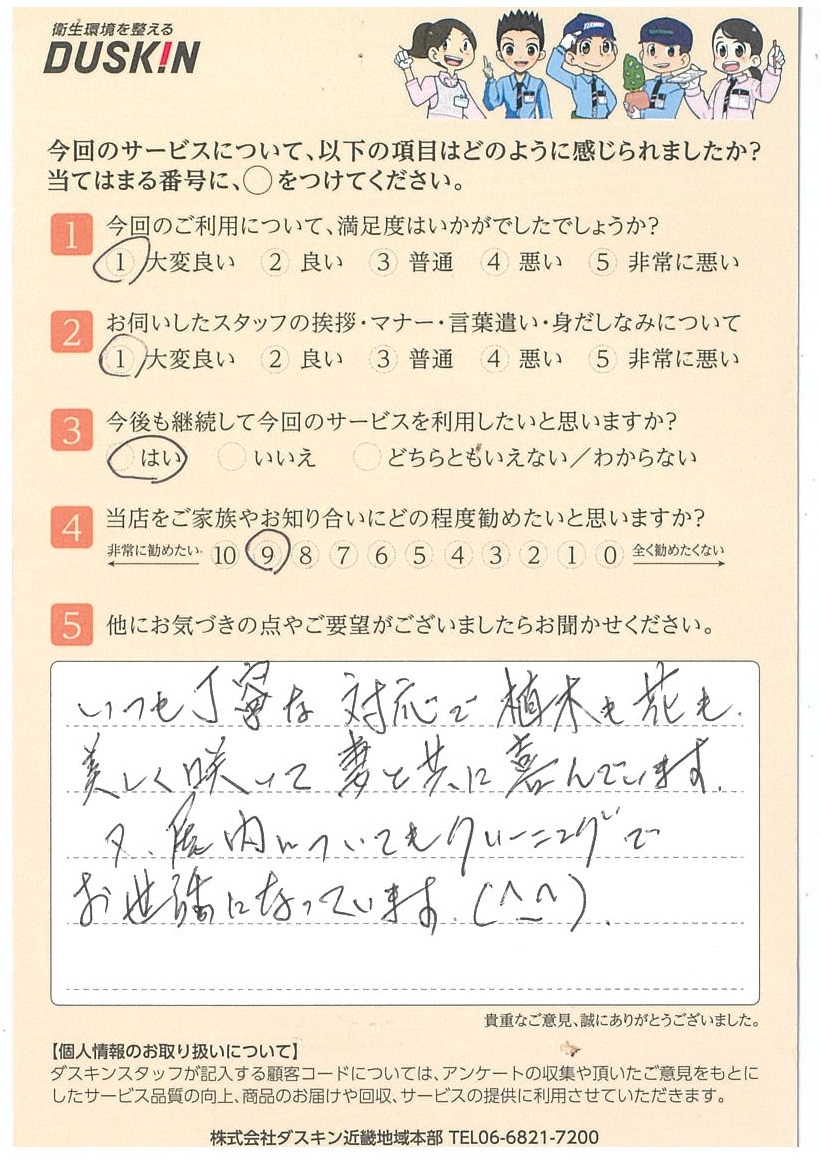 衛生環境を整える
DUSK!N
今回のサービスについて、以下の項目はどのように感じられましたか?
当てはまる番号に、◯をつけてください。
1 今回のご利用について、満足度はいかがでしたでしょうか?
1 大変良い 2 良い 3 普通 4 悪い 5 非常に悪い
2 お伺いしたスタッフの挨拶・マナー・言葉遣い・身だしなみについて
1 大変良い 2 良い 3 普通 4 悪い 5 非常に悪い
3 今後も継続して今回のサービスを利用したいと思いますか?
はい いいえ どちらともいえない/わからない
4 当店をご家族やお知り合いにどの程度勧めたいと思いますか?
非常に勧めたい 10 9 8 7 6 5 4 3 2 1 0 全く勧めたくない
5 他にお気づきの点やご要望がございましたらお聞かせください。
いつも丁寧な対応で植木も花も
美しく咲いて妻と共に喜んでいます。
又、屋内についてもクリーニングで
お世話になっています。(^_^).
貴重なご意見、誠にありがとうございました。
【個人情報のお取り扱いについて】
ダスキンスタッフが記入する顧客コードについては、アンケートの収集や頂いたご意見をもとに
したサービス品質の向上、商品のお届けや回収、サービスの提供に利用させていただきます。
株式会社ダスキン近畿地域本部 TEL06-6821-7200